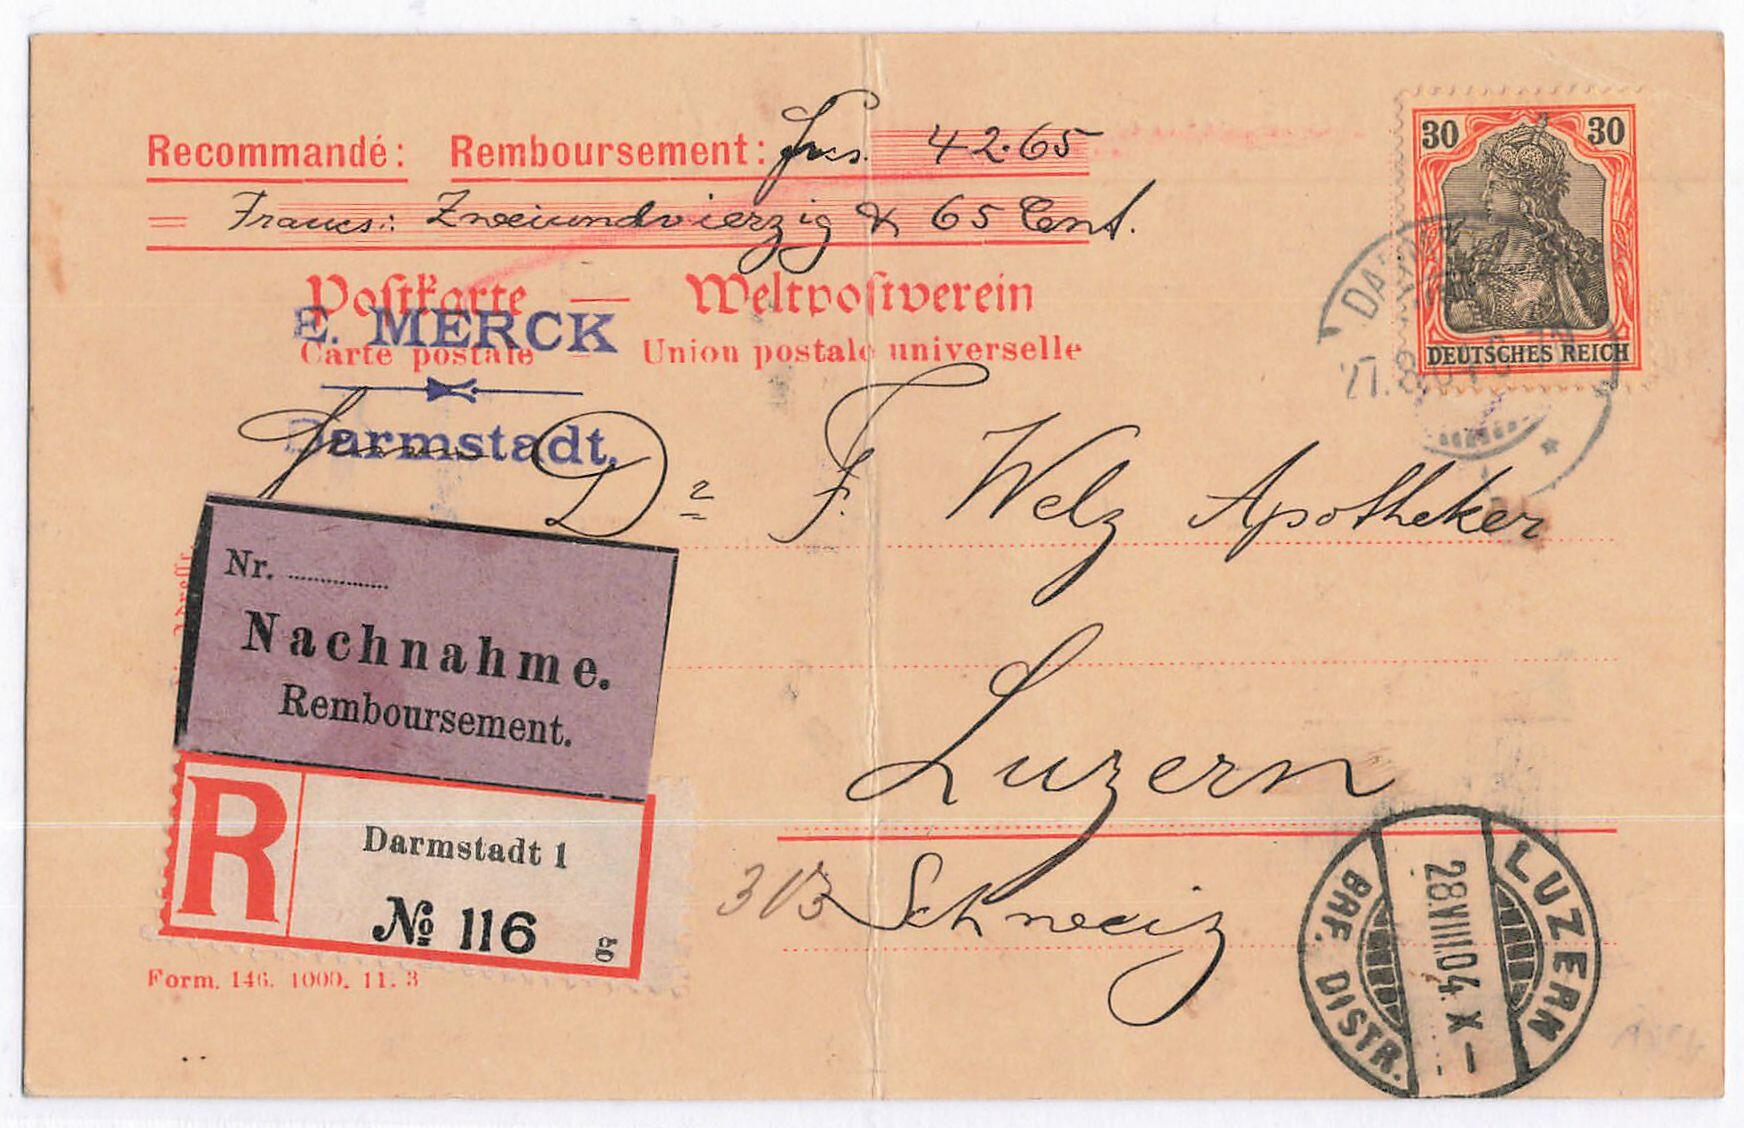 Recommandé: Remboursement: frcs. 42.65
= Francs: Zweiundvierzig & 65 Cent.
Postkarte — Weltpostverein
Carte postale Union postale universelle
E. MERCK
Darmstadt.
30 30
DEUTSCHES REICH
27.8.04
Herrn Dr F. Welz Apotheker
Luzern
Schweiz
313
Nr.
Nachnahme.
Remboursement.
R
Darmstadt 1
No 116 g
Form. 146. 1000. 11. 3
LUZERN
28.VIII.04.X–
BRF. DISTR.